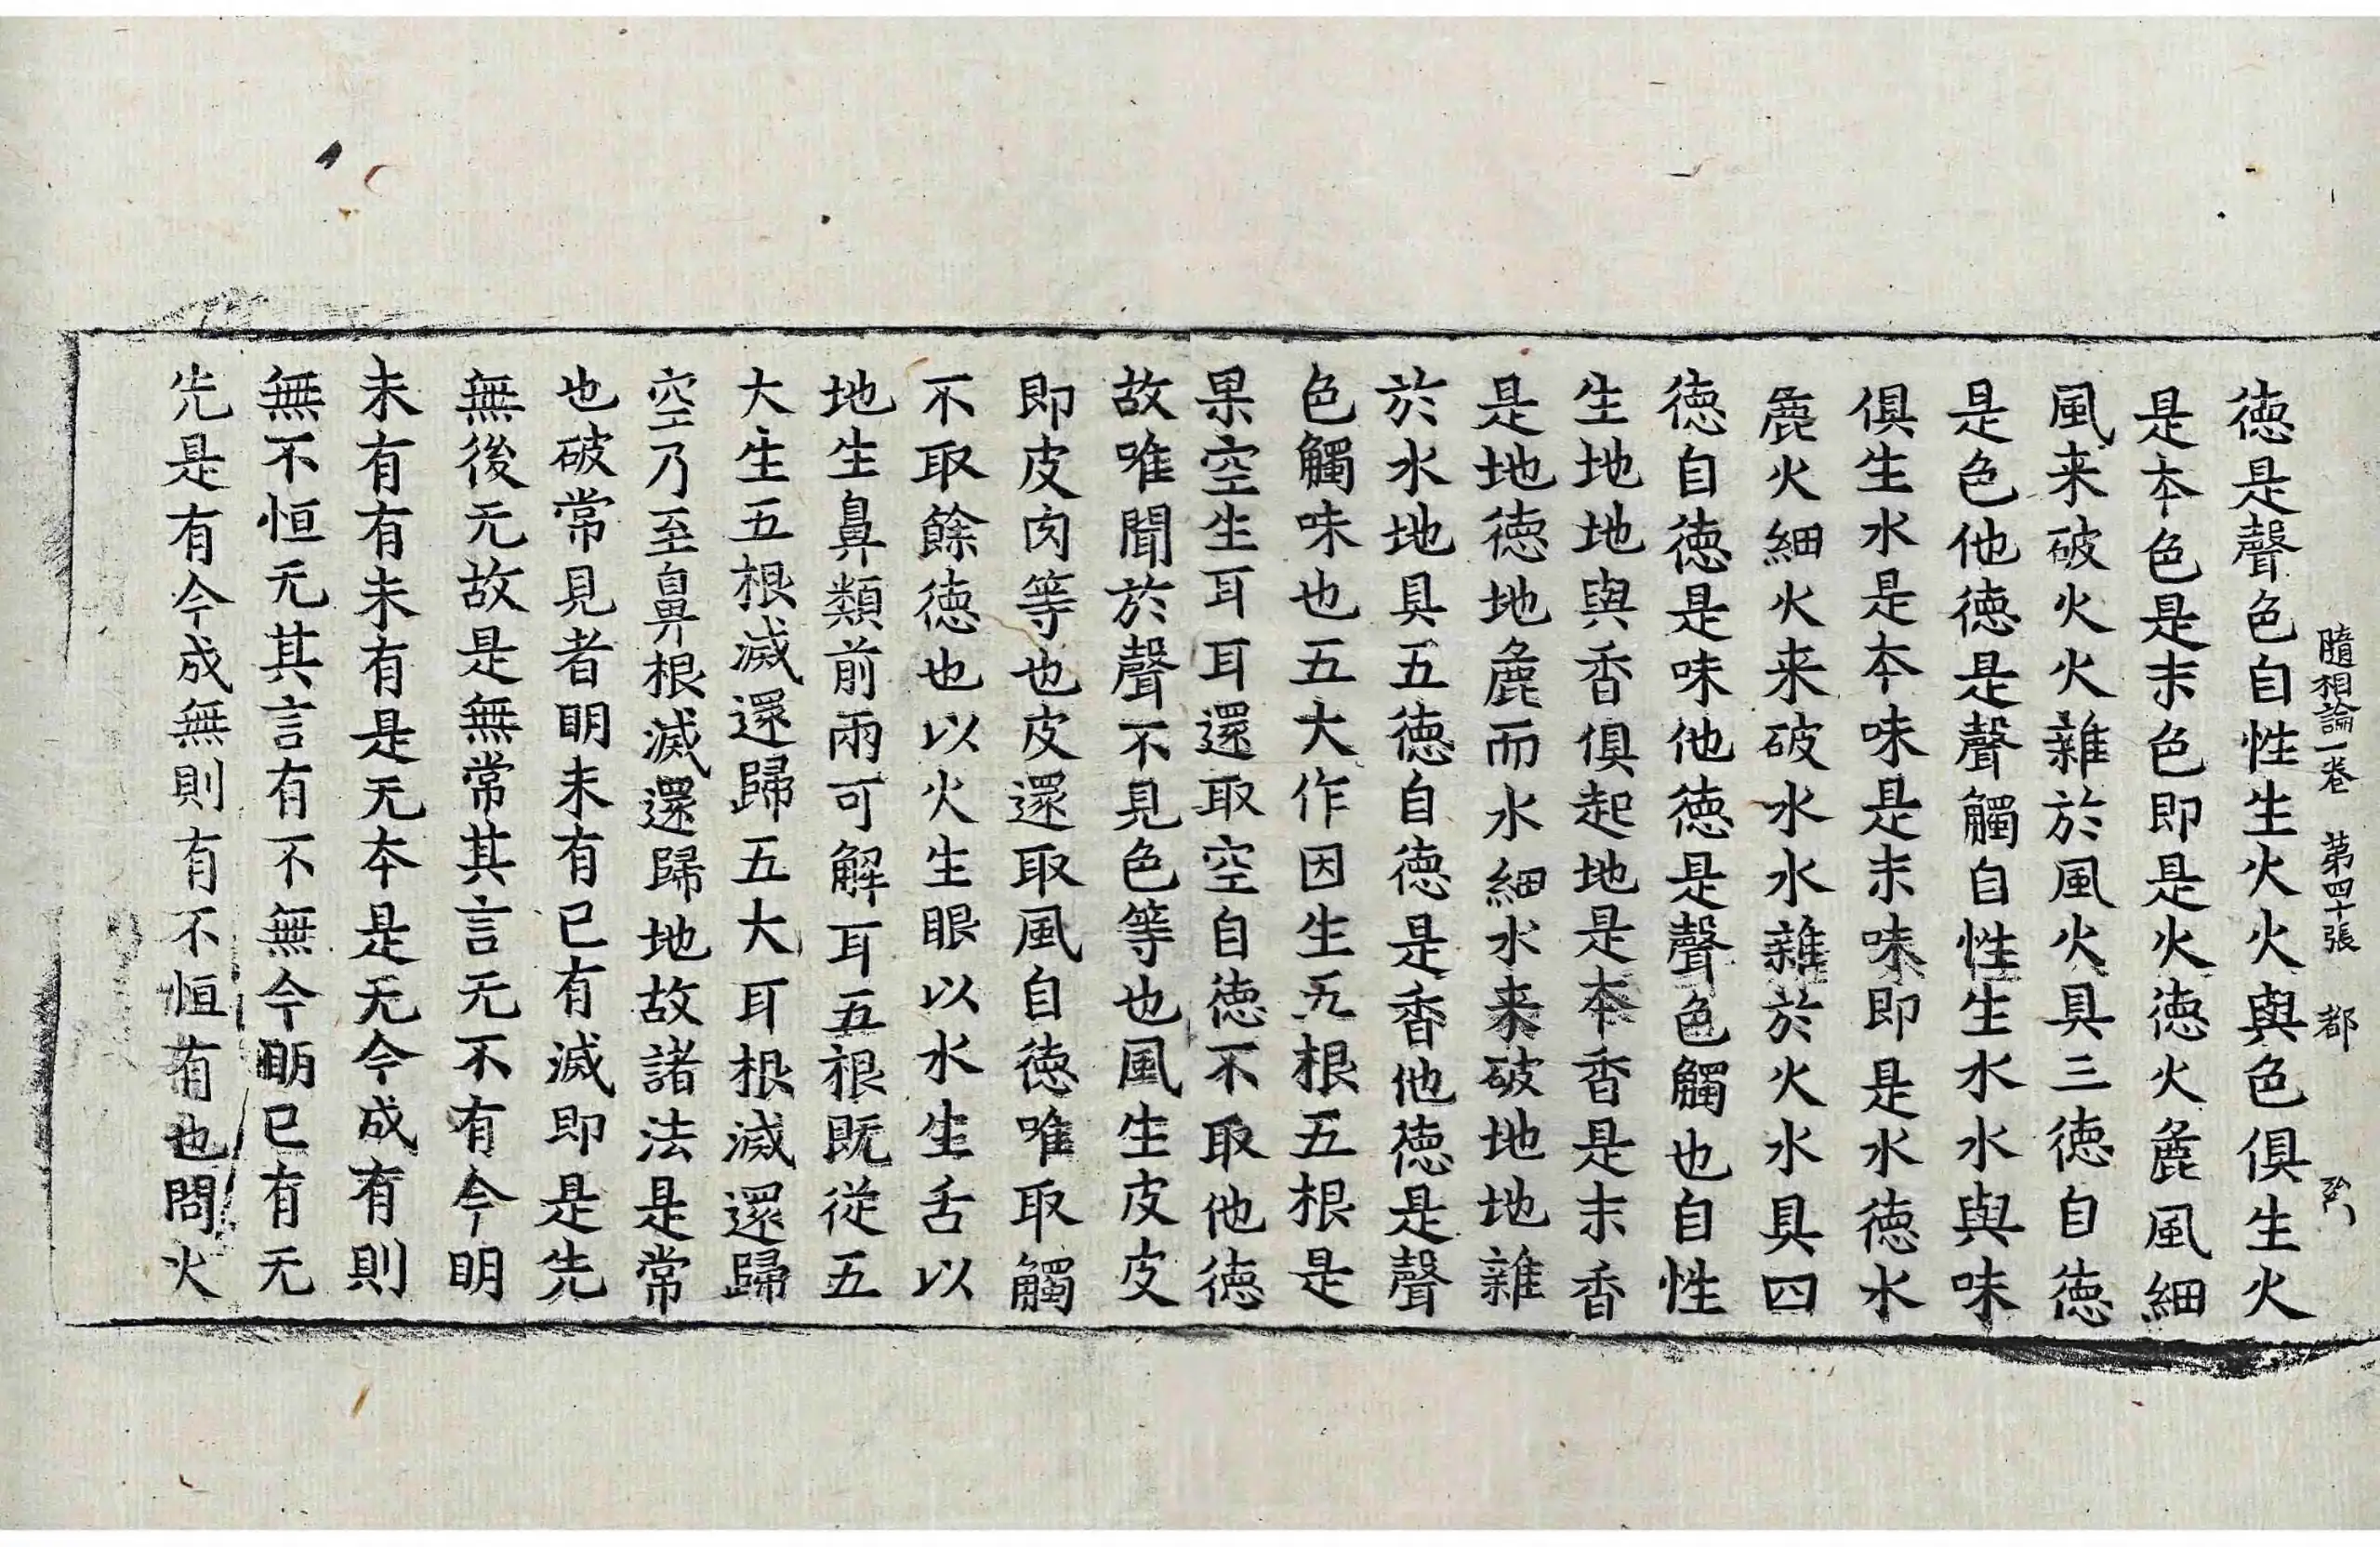 隨相論一卷　第四十張　都
德是聲色自性生火火與色俱生火
是本色是末色即是火德火麁風細
風来破火火雜於風火具三德自德
是色他德是聲觸自性生水水與味
俱生水是本味是末味即是水德水
麁火細火来破水水雜於火水具四
德自德是味他德是聲色觸也自性
生地地與香俱起地是本香是末香
是地德地麁而水細水来破地地雜
於水地具五德自德是香他德是聲
色觸味也五大作因生五根五根是
果空生耳耳還取空自德不取他德
故唯聞於聲不見色等也風生皮皮
即皮肉等也皮還取風自德唯取觸
不取餘德也以火生眼以水生舌以
地生鼻類前兩可解耳五根既從五
大生五根滅還歸五大耳根滅還歸
空乃至鼻根滅還歸地故諸法是常
也破常見者明未有已有滅即是先
無後无故是無常其言无不有今明
未有有未有是无本是无今成有則
無不恒无其言有不無今明已有无
先是有今成無則有不恒有也問火